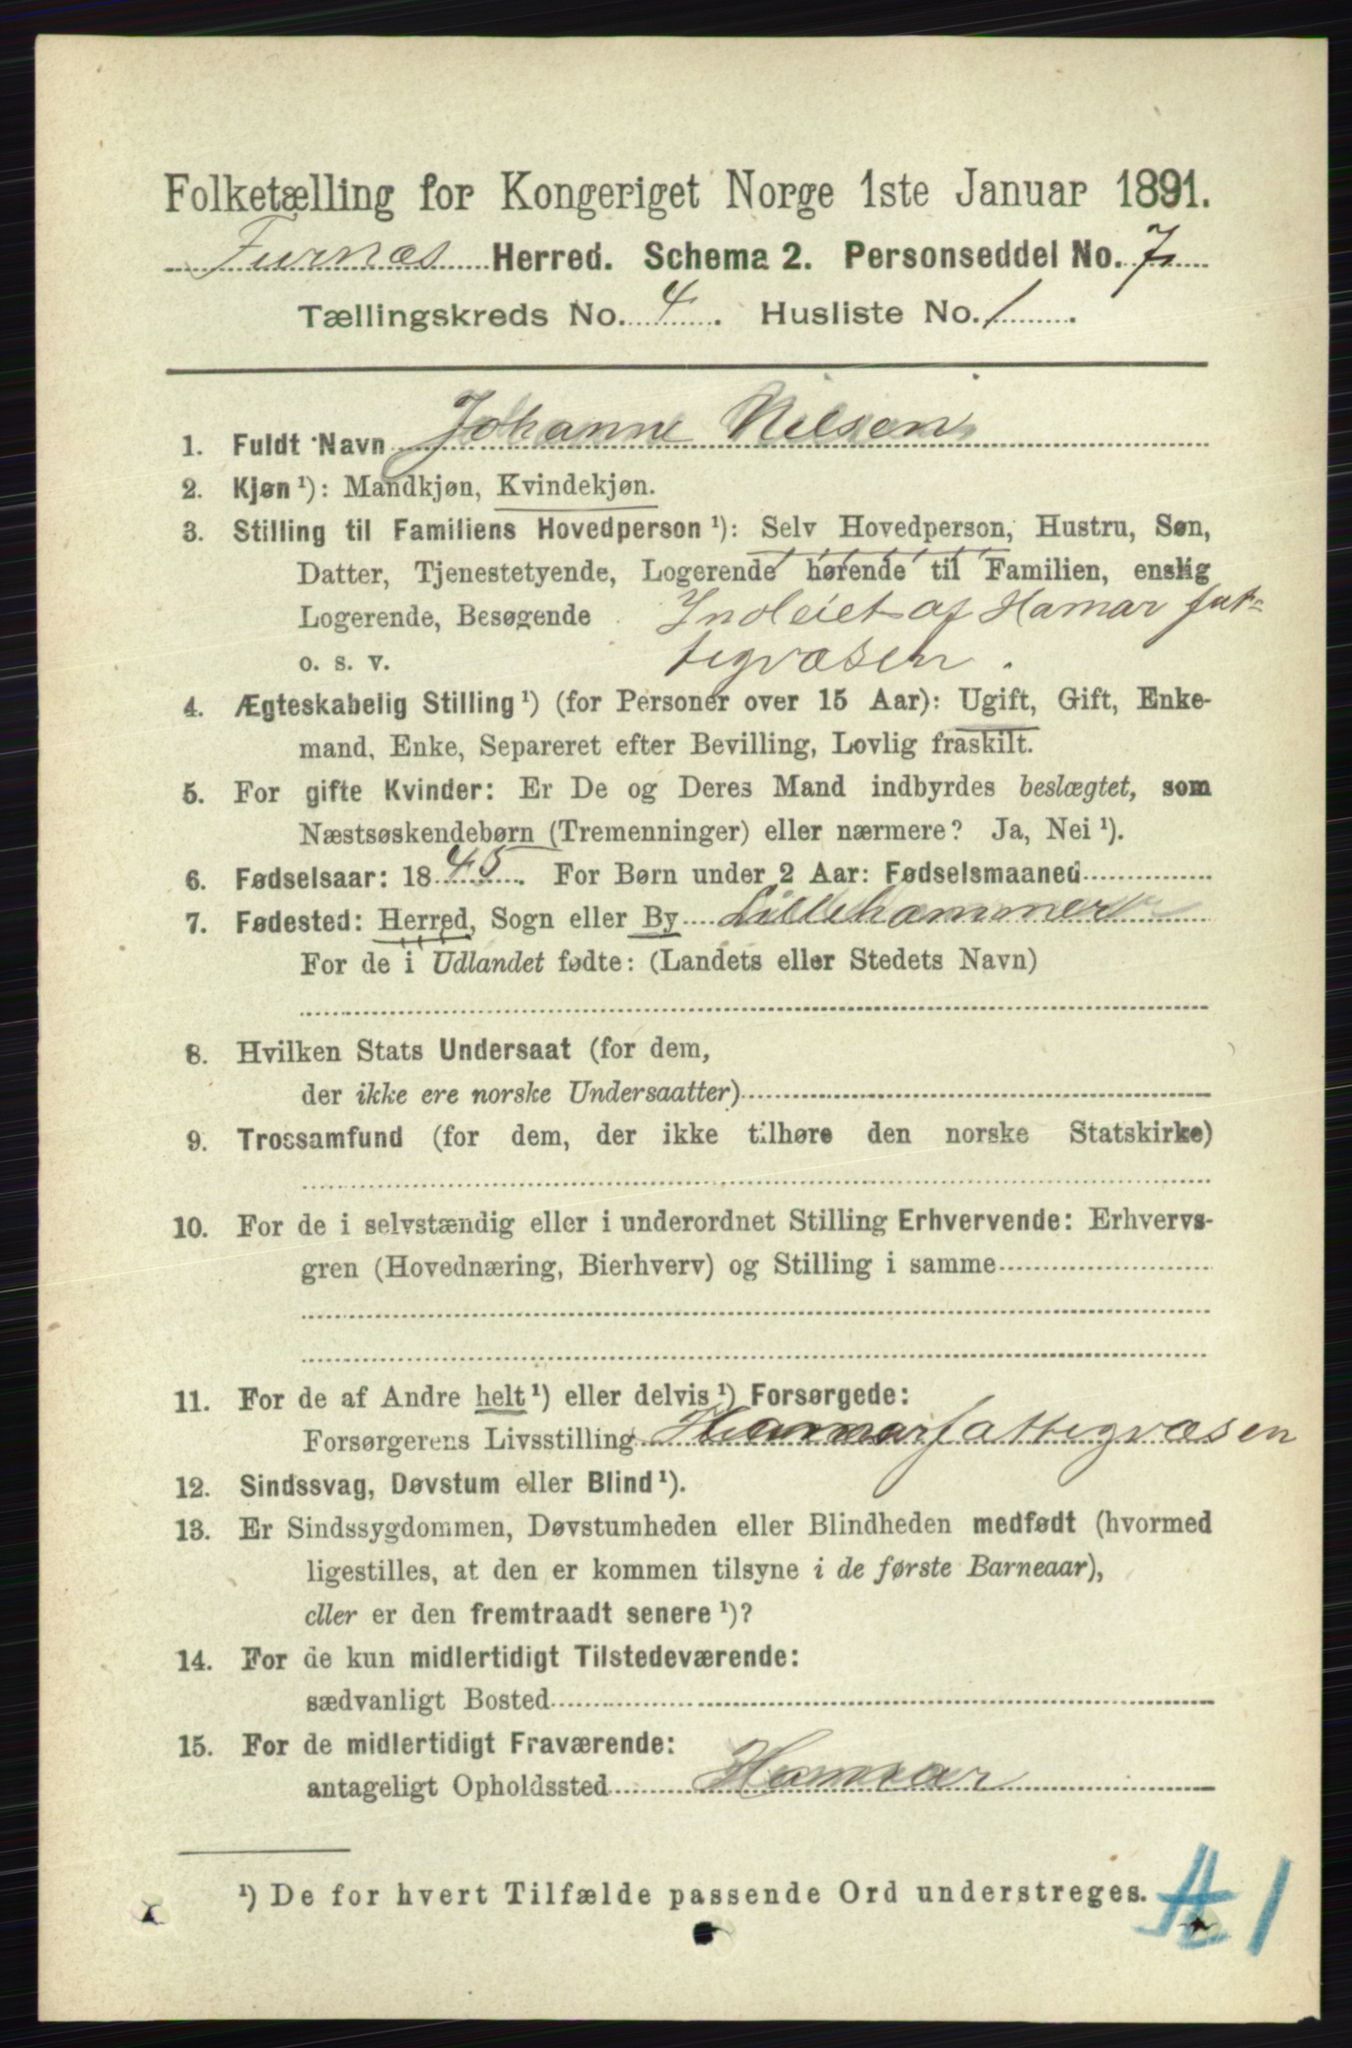 Folketælling for Kongeriget Norge 1ste Januar 1891.
Furnæs Herred. Schema 2. Personseddel No. 7
Tællingskreds No. 4. Husliste No. 1.
1. Fuldt Navn Johanne Nilsen
2. Kjøn ¹): Mandkjøn, Kvindekjøn.
3. Stilling til Familiens Hovedperson ¹): Selv Hovedperson, Hustru, Søn,
Datter, Tjenestetyende, Logerende hørende til Familien, enslig
Logerende, Besøgende Indleiet af Hamar fat-
o. s. v. tigvæsen.
4. Ægteskabelig Stilling ¹) (for Personer over 15 Aar): Ugift, Gift, Enke-
mand, Enke, Separeret efter Bevilling, Lovlig fraskilt.
5. For gifte Kvinder: Er De og Deres Mand indbyrdes beslægtet, som
Næstsøskendebørn (Tremenninger) eller nærmere? Ja, Nei ¹).
6. Fødselsaar: 1845. For Børn under 2 Aar: Fødselsmaaned
7. Fødested: Herred, Sogn eller By Lillehammer
For de i Udlandet fødte: (Landets eller Stedets Navn)
8. Hvilken Stats Undersaat (for dem,
der ikke ere norske Undersaatter)
9. Trossamfund (for dem, der ikke tilhøre den norske Statskirke)
10. For de i selvstændig eller i underordnet Stilling Erhvervende: Erhvervs-
gren (Hovednæring, Bierhverv) og Stilling i samme
11. For de af Andre helt ¹) eller delvis ¹) Forsørgede:
Forsørgerens Livsstilling Hamar fattigvæsen
12. Sindssvag, Døvstum eller Blind ¹).
13. Er Sindssygdommen, Døvstumheden eller Blindheden medfødt (hvormed
ligestilles, at den er kommen tilsyne i de første Barneaar),
eller er den fremtraadt senere ¹)?
14. For de kun midlertidigt Tilstedeværende:
sædvanligt Bosted
15. For de midlertidigt Fraværende:
antageligt Opholdssted Hamar
¹) De for hvert Tilfælde passende Ord understreges.